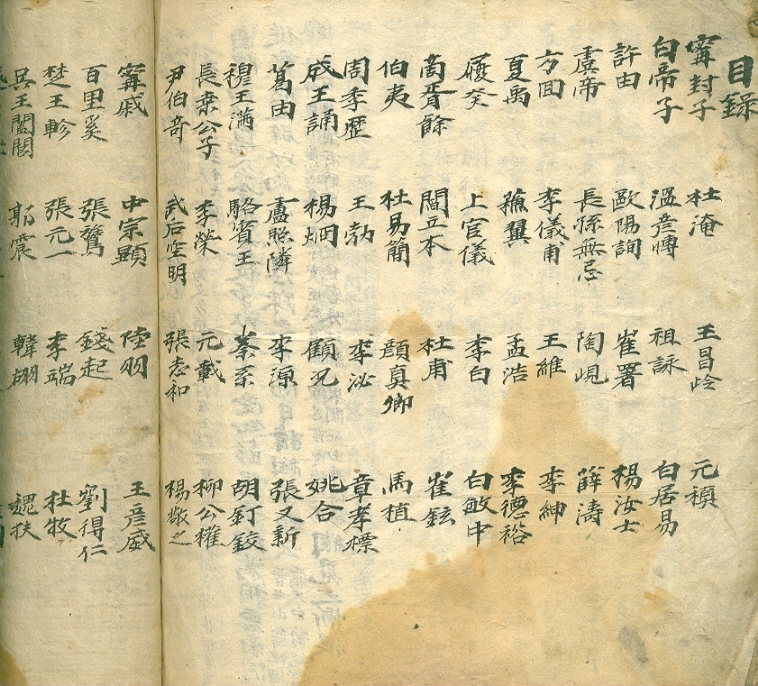 目録
甯封子 杜淹 王昌岭 元稹
白帝子 溫彦博 祖詠 白居易
許由 歐陽詢 崔署 楊汝士
虞帝 長孫無忌 陶峴 薛濤
方回 李儀甫 王維 李紳
夏禹 蘓翼 孟浩 李德裕
履癸 上官儀 李白 白敏中
商胥餘 閻立本 杜甫 崔鉉
伯夷 杜易簡 顔真卿 馬植
周季歷 王勃 李泌 章孝標
成王誦 楊炯 顧况 姚合
葛由 盧照隣 李源 張又新
穆王滿 駱賓王 秦系 胡釘鉸
長桑公子 李榮 元載 柳公權
尹伯奇 武后空明 張志和 楊敬之
甯戚 中宗顯 陸羽 王彦威
百里奚 張鷟 錢起 劉得仁
楚王軫 張元一 李端 杜牧
吳王闔閭 郭震 韓翃 魏扶